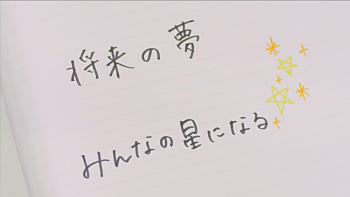 将来の夢
みんなの星になる